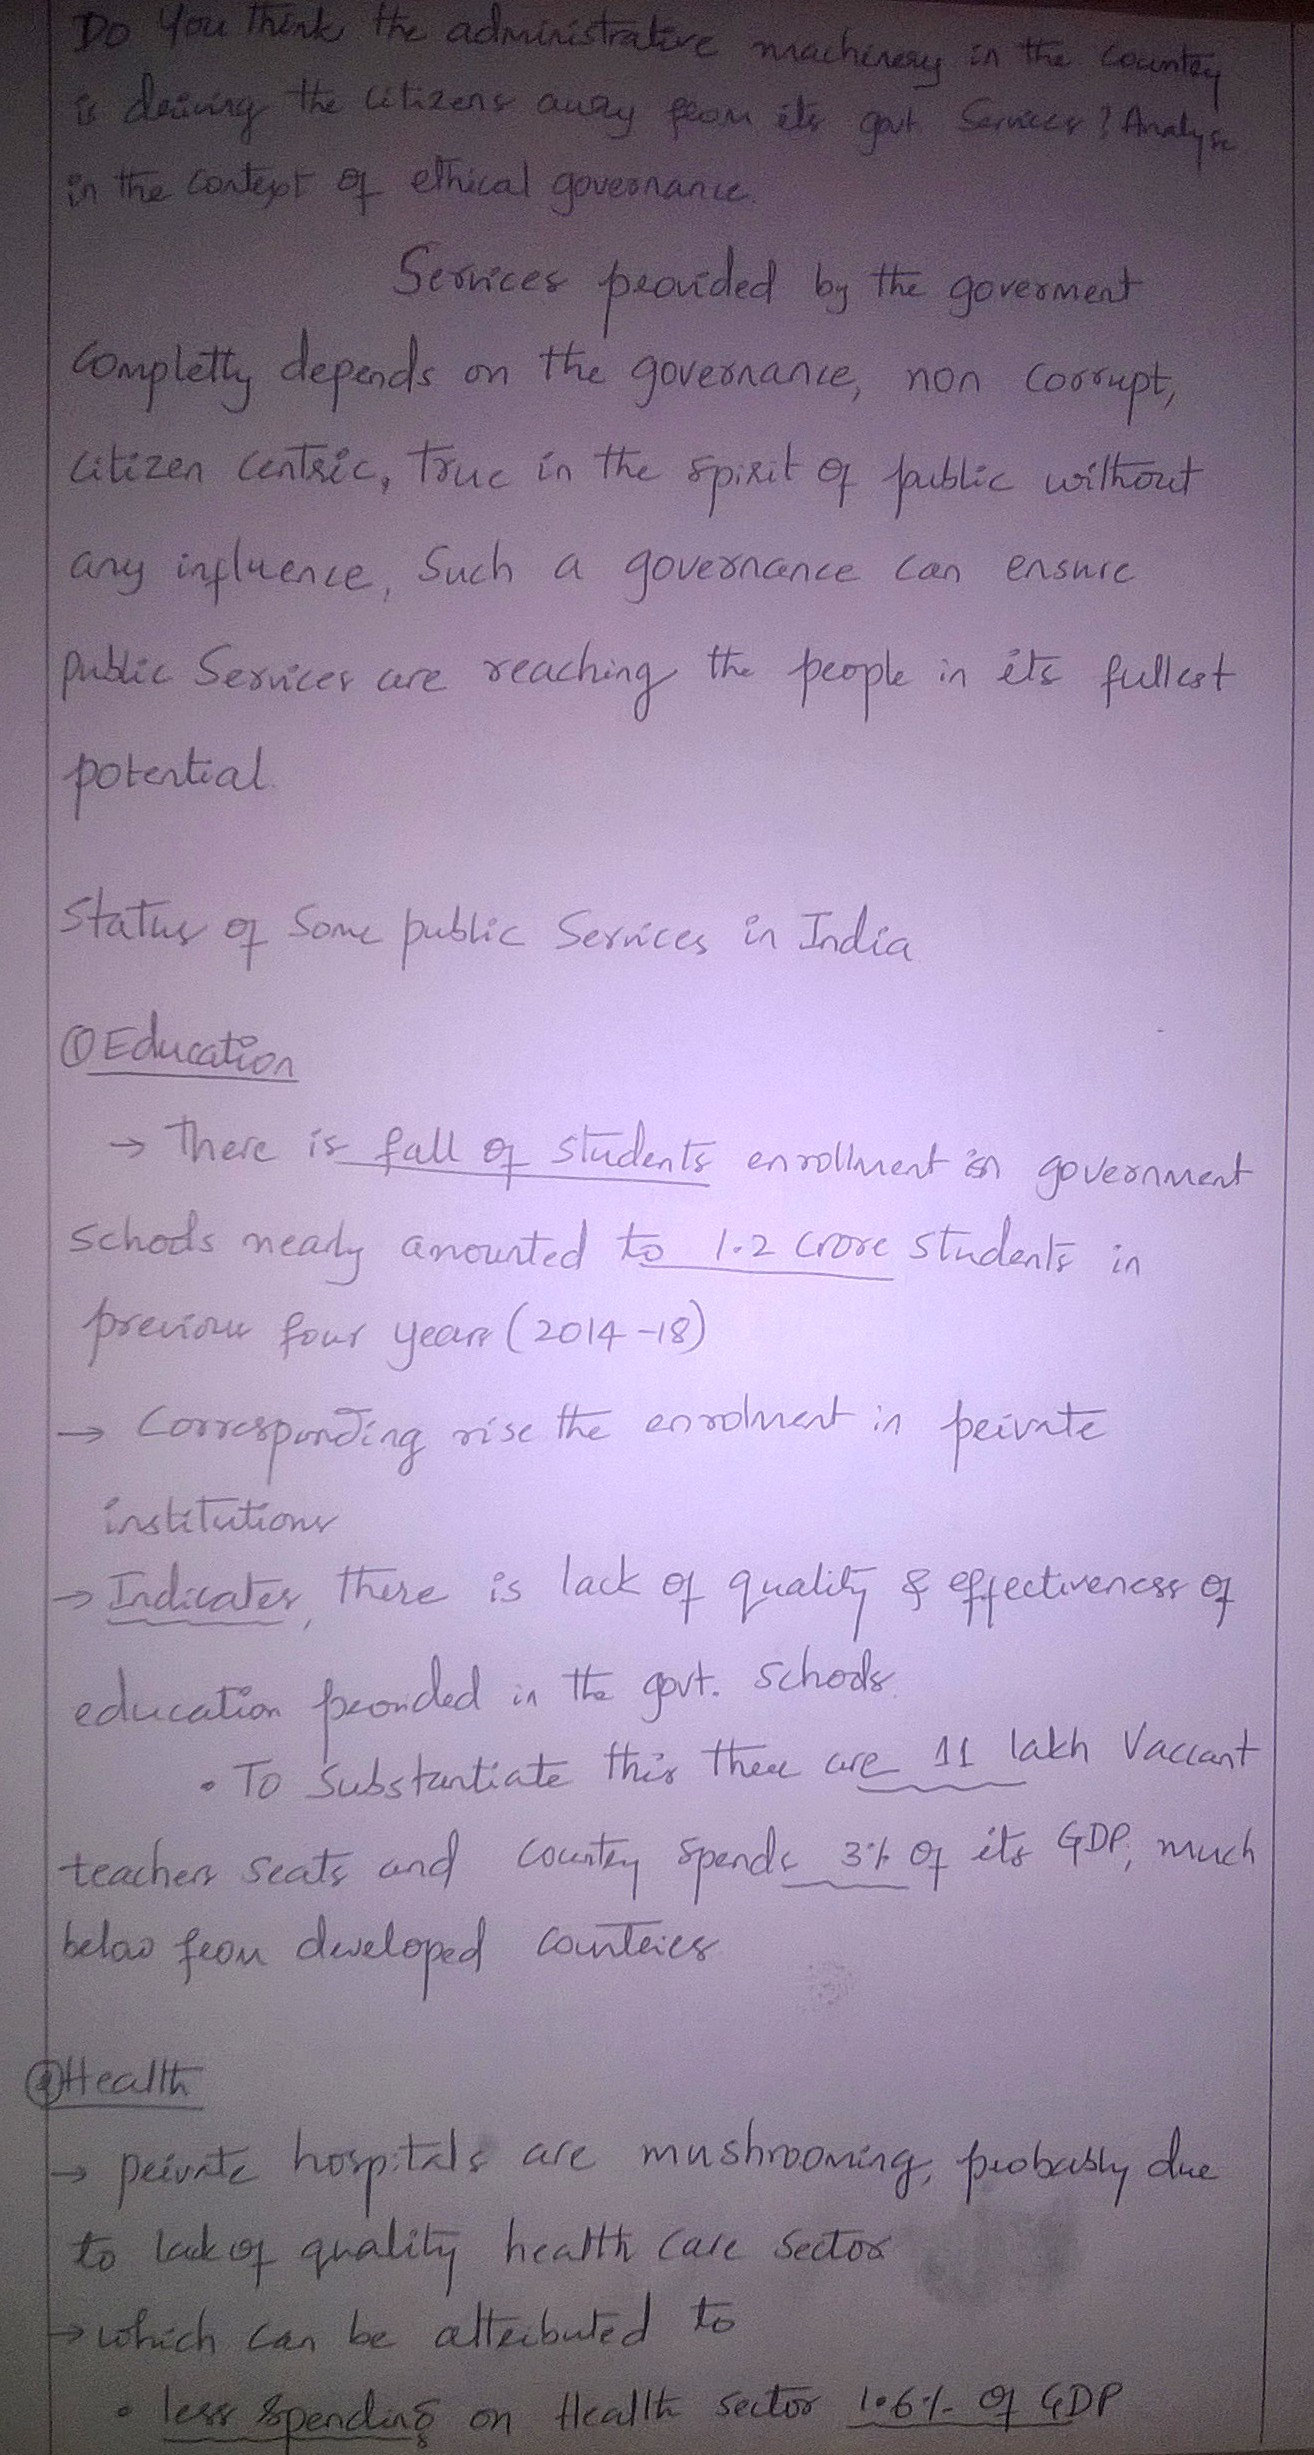 Do you think the administrative machinery in the country
is driving the citizens away from its govt services? Analyse
in the context of ethical governance.
Services provided by the goverment
completly depends on the governance, non corrupt,
citizen centric, true in the spirit of public without
any influence, Such a governance can ensure
public Services are reaching the people in its fullest
potential.
Status of Some public Services in India
① Education
→ There is fall of students enrollment in government
schools nearly amounted to 1.2 crore students in
previous four years (2014-18)
→ Corresponding rise the enrolment in private
institutions
→ Indicates, there is lack of quality & effectiveness of
education provided in the govt. schools.
• To substantiate this there are 11 lakh Vaccant
teachers seats and country spends 3% of its GDP, much
below from developed countries
② Health
→ private hospitals are mushrooming, probably due
to lack of quality health care sector
→ which can be attributed to
• less spending on Health sector 1.6% of GDP